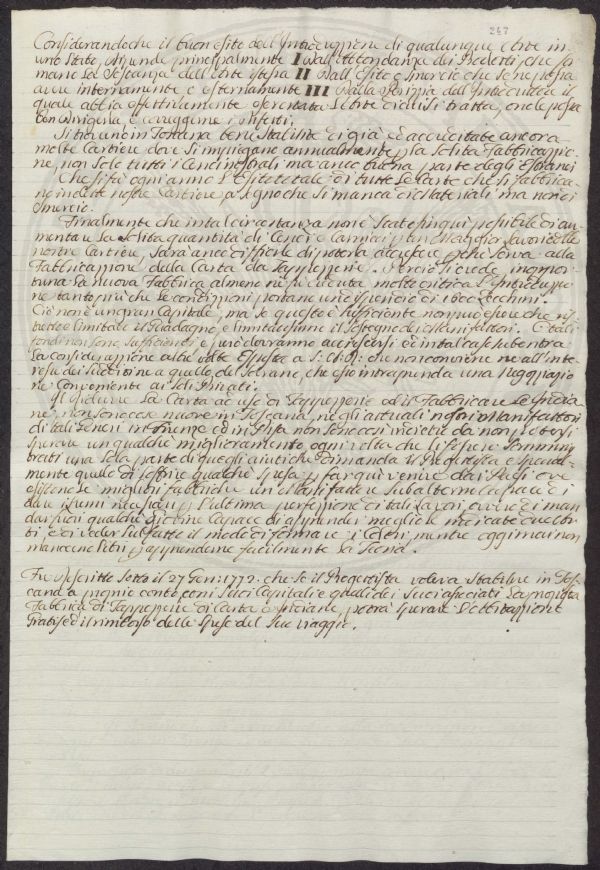 267
Considerando che il buon esito dell'Introduzzione di qualunque Arte in
uno Stato, dipende principalmente I dall'abbondanza dei Prodotti, che for
mano la sostanza dell'Arte istessa II dall'Esito e Smercio che se ne possa
avere internamente e esternamente III dalla Perizia dell'Introduttore il
quale abbia effettivamente esercitata l'Arte di cui si tratta, onde possa
ben dirigerla, e correggerne i difetti.
Si trovano in Toscana bene stabilite di già ed accreditate ancora
molte Cartiere dove si impiegano annualmente p la solita Fabbricazzio
ne, non solo tutti i Cenci nostrali ma anco buona parte degli Esteri
Che si fà ogni anno l'Esito totale di tutte le Carte che si fabbrica
no in dette nostre Cartiere a segno che si manca di Materiali ma non di
Smercio.
Finalmente che in tal circostanza non è stato fin qui possibile di au
mentare la solita quantità di Cenci e Carnicci p un Maggior lavoro delle
nostre Cartiere, sarà anco difficile di poterla accrescere perché serva alla
Fabbricazzione della Carta da Tapezzerie. Perciò si crede inoppor
tuna la nuova Fabbrica almeno ne pare molto critica l'Introduzzio
ne tanto più che le condizzioni portano uno ispendio di 1600 Zecchini.
Ciò non è un gran Capitale, ma se questo è sufficiente non può essere che ris
tretto e limitato il Guadagno e limitatissimo il sostegno dei Manifattori. E tali
fondi non sono sufficienti e però dovranno accrescersi ed in tal caso subentra
la considerazzione altre volte Esposta a S: A: R: che non conviene ne all'inte
resse dei Sudditi ne a quello del Sovrano, che esso intraprenda una Negoziazio
ne conveniente ai soli Privati.
Il ridurre la Carta ad uso di Tapezzerie ed il Fabbricare le
non sono cose nuove in Toscana, ne gli attuali nostri Manifattori
di tali Generi in Firenze ed in Pisa non sono così indietro da non potersi
sperare un qualche miglioramento ogni volta che li fossero sommini
strati una sola parte di quegli aiuti che dimanda il Progettista, e special
mente quello di soffrire qualche spesa p far quì venire dai Paesi ove
esistono le migliori Fabbriche un Manifattore subalterno capace di
dare i Lumi necessari p l'ultima perfezzione di tali Lavori, ovvero di man
dar fuori qualche giovine capace di apprender meglio le indicate due Ar
ti, e di veder sul fatto il modo di formare i Colori, mentre oggi mai non
mancano Libri p apprenderne facilmente la Teoria.
Fu Rescritto sotto il 27 Gen: 1772. che se il Progettista voleva stabilire in Tos
cana a proprio conto, con i suoi Capitali e quelli dei suoi associati la proposta
Fabbrica di Tapezzerie di Carta potrà sperare l'Abitazzione
Gratis ed il rimborso delle spese del suo viaggio.